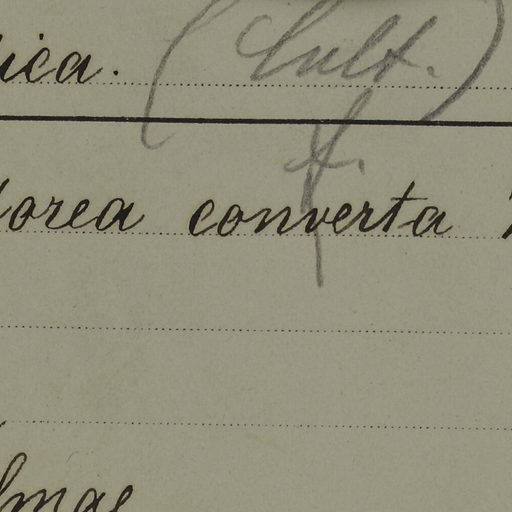 ica. (Cult.)
f.
orea converta
lmae